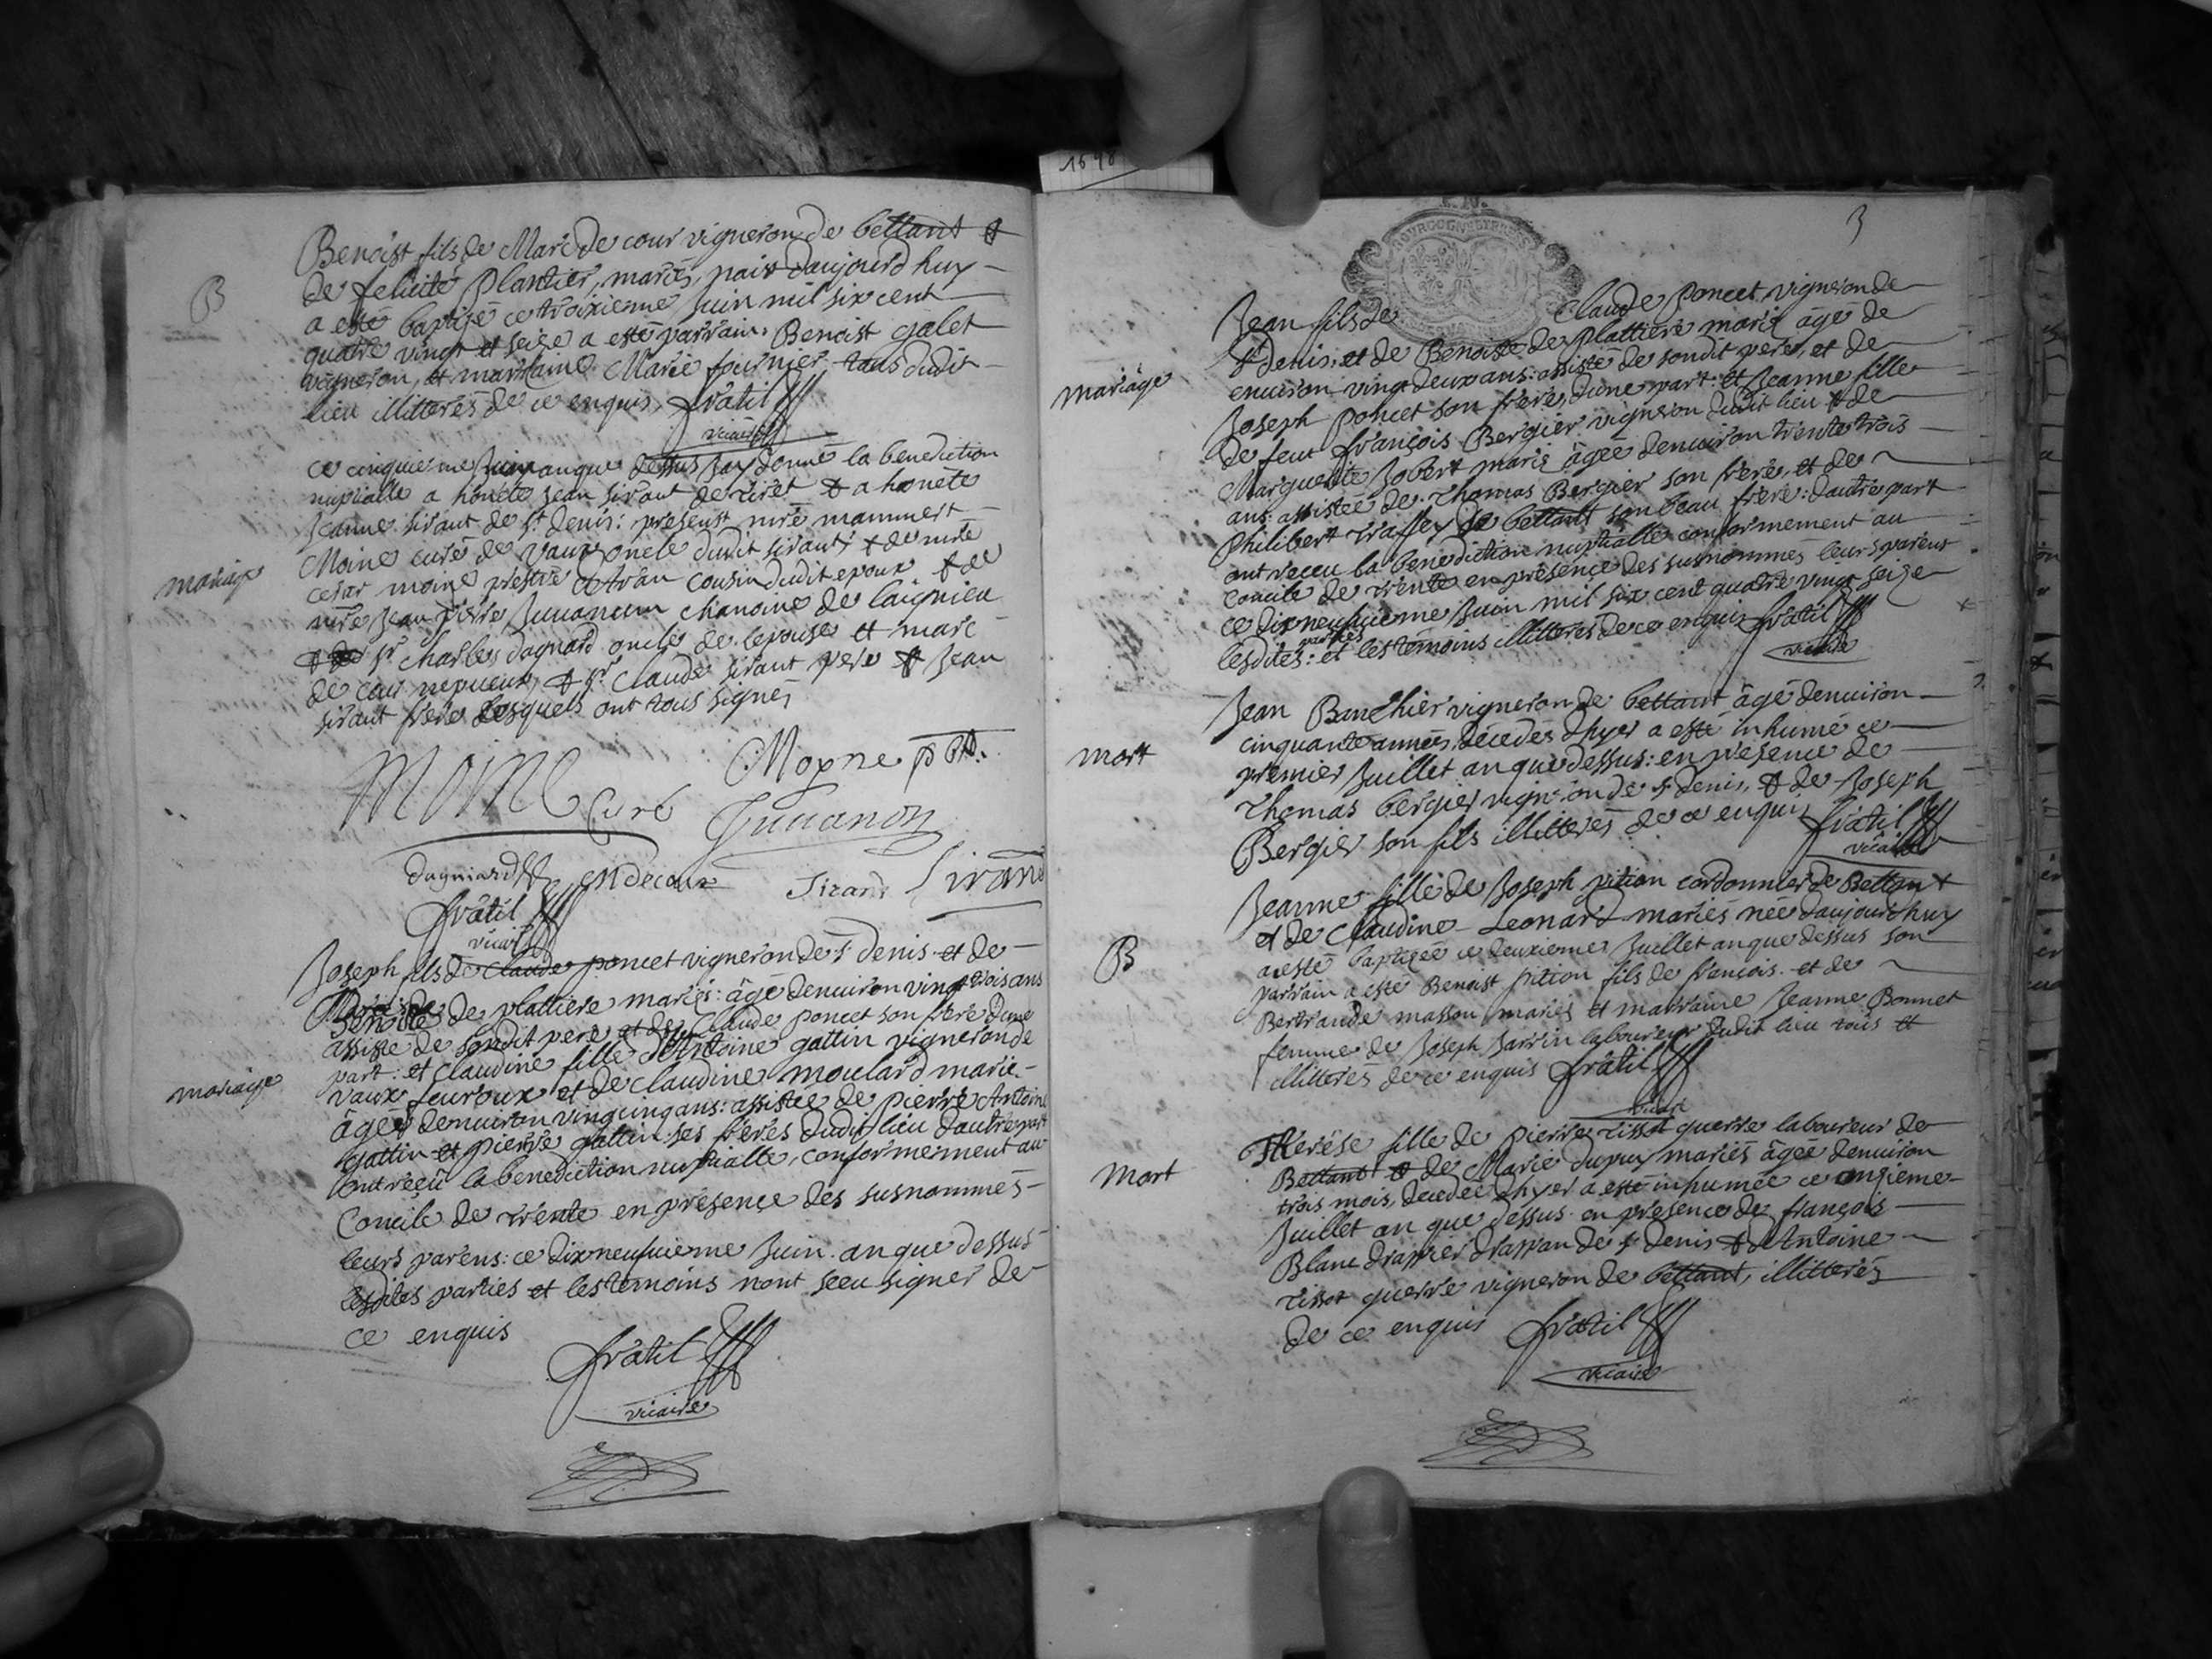 1696
B
Benoist fils de Marc de cour vigneron de bettant &
de felicité Plantier, mariés, nai daujourdhuy
a esté baptisé ce troixieme Juin mil six cent
quatre vingt et seize a esté parrain Benoist galet
vigneron, et marraine Marie fournier tous dudit
lieu illitterés de ce enquis fratil
vicaire
mariage
ce cinquieme Juin an que dessus Jay donné la benediction
nuptialle a honete Jean sirant de tiret & a honete
Jeanne sirant de st denis: present mre mammert
Moine curé de Vaux oncle dudit sirant & de mre
cesar moine prestre cousin dudit epoux & de
mre Jean pierre Juuanon chanoine de laignieu
& sr Charles dagnard oncle de lepouse et marc
de cour nepueux & sr Claude sirant pere & Jean
sirant frere lesquels ont tous signés
Moine Curé
Moyne pbt.
Juuanon
dagniard M decour Sirant Sirant
fratil
vicaire
mariage
Joseph fils de Claude poncet vigneron de st denis et de
Benoite de plattiere mariés: âgé denuiron vingt trois ans
assisté de sondit pere et de Claude poncet son frere dune
part: et Claudine fille dAntoine gattin vigneron de
vaux feuroux et de claudine moulard marié
âgée denuiron vingcinq ans: assistée de pierre Antoine
gattin et pierre gattin ses freres dudit lieu dautre part
ont reçeu la benediction nuptialle, conformement au
Concile de trente en presençe des susnommés
leurs parens: ce dix neufuieme Juin an que dessus
lesdites parties et les temoins nont sceu signer de
ce enquis
fratil
vicaire
3
mariage
Jean fils de Claude poncet vigneron de
st denis, et de Benoite de plattiere marié âgé de
enuiron vingt deux ans: assisté de sondit pere, et de
Joseph poncet son frere, dune part: et Jeanne fille
de feu françois Bergier vigneron dudit lieu & de
Marguerite Jobert marié âgée denuiron trente trois
ans: assistée de Thomas Bergier son frere, et de
philibert traffey de bettant son beau frere: dautre part
ont receu la benediction nuptialle conformement au
concile de trente en présence des susnommés leurs parens
ce dix neufuieme Juin mil six cent quatre vingt seize
lesdites parties: et les temoins illitteres de ce enquis fratil
vicaire
mort
Jean Banchier vigneron de bettant âgé denuiron
cinquante années, décedés dhyer a esté inhumé ce
premier Juillet an que dessus: en presence de
Thomas bergier vigneron de st denis, & de Joseph
Bergier son fils illitterés de ce enquis fratil
vicaire
B
Jeanne fille de Joseph pition cordonnier de Bettant
et de Claudine Leonard mariés née daujourdhuy
a esté baptizée ce deuxieme Juillet an que dessus son
parrain a esté Benoist pition fils de françois et de
Bertrande masson mariés et marraine Jeanne Bonnet
femme de Joseph Jarrin laboureur dudit lieu tous et
illitterés de ce enquis fratil
vicaire
Mort
Therése fille de pierre tissot guerre laboureur de
Bettant & de Marie dupuy mariés âgée denuiron
trois mois, decedée dhyer a esté inhumée ce onzieme
Juillet an que dessus en presence de françois
Blanc drappier drappan de st denis & dAntoine
tissot guerre vigneron de bettant, illitterés
de ce enquis fratil
vicaire